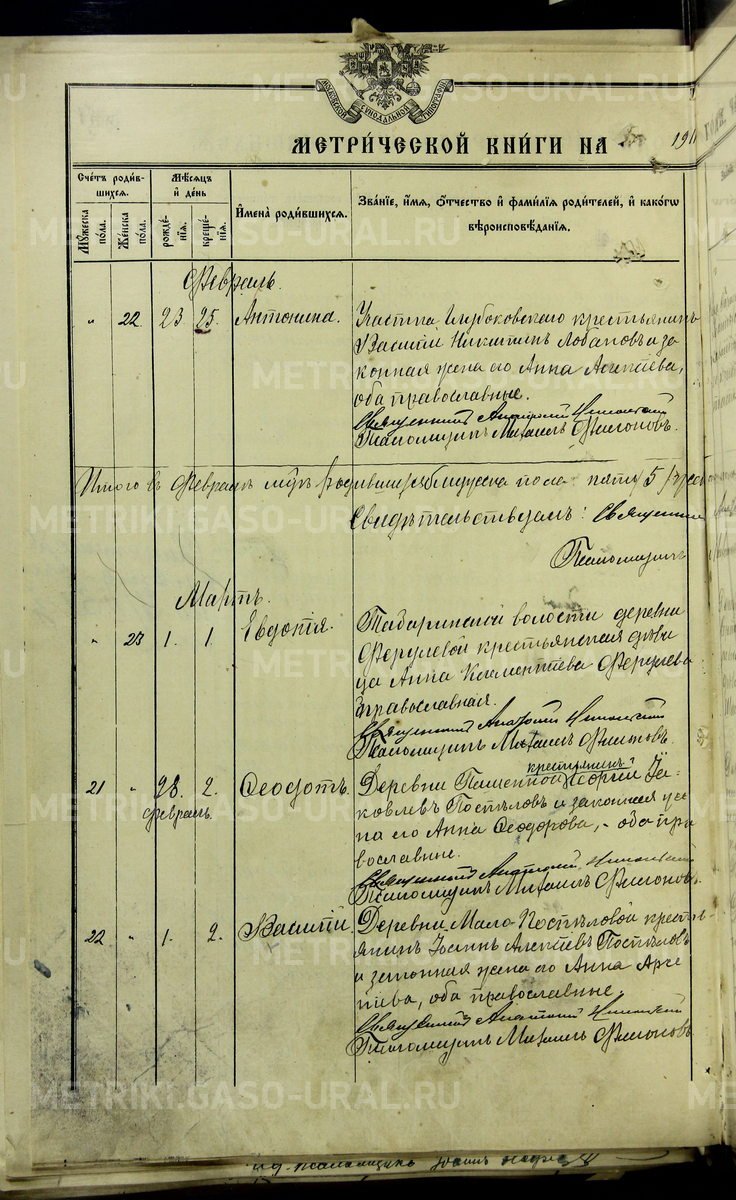 МЕТРИ́ЧЕСКОЙ КНИ́ГИ НА 191
Сче́тъ роди́в-
шихся.
Мѣ́сяцъ
и҆ де́нь
Мꙋ́жеска по́ла.
Же́нска по́ла.
рожде́-
нїя.
креще́-
нїя.
И҆мена̀ роди́вшихся.
Зва́нїе, и҆́мя, ѻ҆́тчество и҆ фами́лїя роди́телей, и҆ како́гѡ
вѣроисповѣ́данїя.
Февраль.
" 22. 23 25. Антонина.
Участка Глубоковскаго крестьянинъ
Василій Никитинъ Лобановъ и за
конная жена его Анна Алексѣева,
оба православные.
Священникъ Анатолій
Псаломщикъ Михаилъ Филоновъ.
Итого въ Февралѣ родившихся пола пять 5
Свидѣтельствуемъ: Священник
Псаломщикъ
Мартъ.
" 23 1. 1. Евдокія.
Табаринской волости деревни
Ферулевой крестьянская дѣви
ца Анна Климентьева Ферулева
православная.
Священникъ Анатолій
Псаломщикъ Михаилъ Филоновъ.
21 " 28. 2. Ѳеодотъ.
Февраль.
крестьянинъ
Деревни Георгій Іа-
ковлевъ Постѣловъ и законная же
на его Анна Ѳеодорова, - оба пра
вославные.
Священникъ Анатолій
Псаломщикъ Михаилъ Филоновъ.
22 " 1. 2. Василій.
Деревни Мало-Постѣловой кресть-
янинъ Іоаннъ Алексѣевъ Постѣловъ
и законная жена его Анна Арсе
тьева, оба православные.
Священникъ Анатолій
Псаломщикъ Михаилъ Филоновъ
METRIKI.GASO-URAL.RU